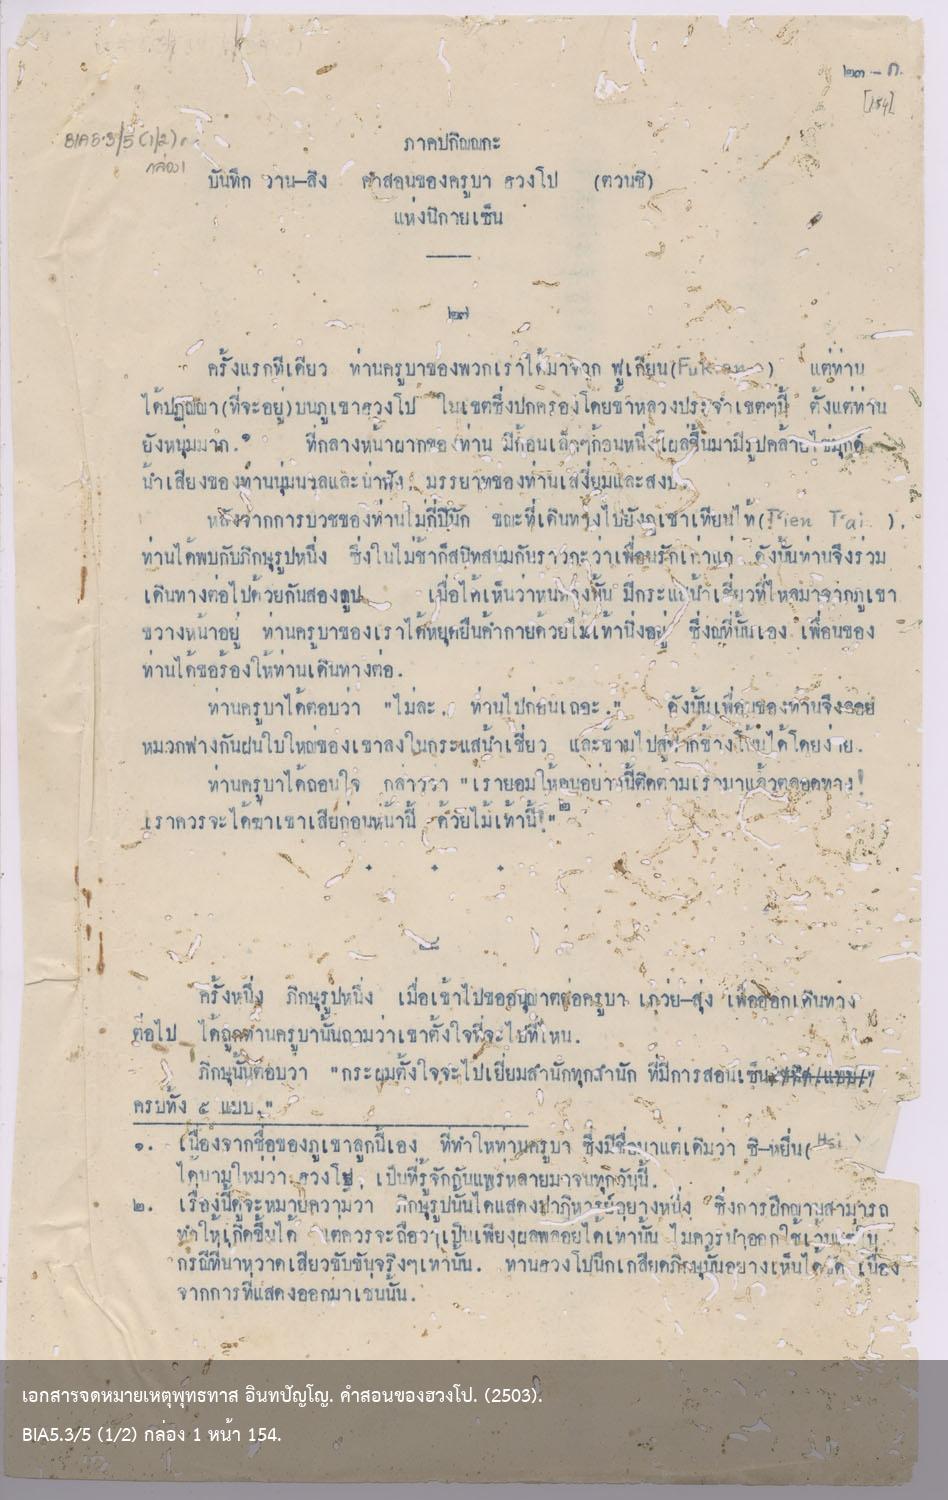 ๒๓ – ก.
[154]
BIA5.3/5 (1/2)
กล่อง 1
ภาคปกิณณกะ
บันทึก วาน–สิง คำสอนของครูบา ฮวงโป (ตวนชิ)
แห่งนิกายเซ็น
๒๗
ครั้งแรกทีเดียว ท่านครูบาของพวกเราได้มาจาก ฟูเกียน( ) แต่ท่าน
ได้ปฏิญญา(ที่จะอยู่)บนภูเขาฮวงโป ในเขตซึ่งปกครองโดยข้าหลวงประจำเขตๆนี้ ตั้งแต่ท่าน
ยังหนุ่มมาก.๑ ที่กลางหน้าผากของท่าน มีก้อนเล็กๆก้อนหนึ่งโผล่ขึ้นมามีรูปคล้ายไข่มุกด์
น้ำเสียงของท่านนุ่มนวลและน่าฟัง, มรรยาทของท่านเสงี่ยมและสงบ
หลังจากการบวชของท่านไม่กี่ปีนัก ขณะที่เดินทางไปยังภูเขาเทียนไท้(Tien Tai ),
ท่านได้พบกับภิกษุรูปหนึ่ง ซึ่งในไม่ช้าก็สนิทสนมกันราวกะว่าเพื่อนรักเก่าแก่ ดังนั้นท่านจึงร่วม
เดินทางต่อไปด้วยกันสองรูป เมื่อได้เห็นว่าหนทางนั้น มีกระแสน้ำเชี่ยวที่ไหลมาจากภูเขา
ขวางหน้าอยู่ ท่านครูบาของเราได้หยุดยืนค้ำกายด้วยไม้เท้านิ่งอยู่ ซึ่งณที่นั้นเอง เพื่อนของ
ท่านได้ขอร้องให้ท่านเดินทางต่อ.
ท่านครูบาได้ตอบว่า "ไม่ละ. ท่านไปก่อนเถอะ." ดังนั้นเพื่อนของท่านจึงลอย
หมวกฟางกันฝนใบใหญ่ของเขาลงในกระแสน้ำเชี่ยว และข้ามไปสู่ฟากข้างโน้นได้โดยง่าย.
ท่านครูบาได้ถอนใจ กล่าวว่า "เรายอมให้คนอย่างนี้ติดตามเรามาแล้วตลอดทาง!
เราควรจะได้ฆ่าเขาเสียก่อนหน้านี้ ด้วยไม้เท้านี้!"๒
ครั้งหนึ่ง ภิกษุรูปหนึ่ง เมื่อเข้าไปขออนุญาตต่อครูบา เกวย–สุ่ง เพื่อออกเดินทาง
ต่อไป ได้ถูกท่านครูบานั้นถามว่าเขาตั้งใจที่จะไปที่ไหน.
ภิกษุนั้นตอบว่า "กระผมตั้งใจจะไปเยี่ยมสำนักทุกสำนัก ที่มีการสอนเซ็น
ครบทั้ง ๕ แบบ."
๑. เนื่องจากชื่อของภูเขาลูกนี้เอง ที่ทำให้ท่านครูบา ซึ่งมีชื่อมาแต่เดิมว่า ซิ–หยื่น(
ได้นามใหม่ว่า ฮวงโป, เป็นที่รู้จักกันแพร่หลายมาจนทุกวันนี้.
๒. เรื่องนี้ดูจะหมายความว่า ภิกษุรูปนั้นได้แสดงปาฏิหารย์อย่างหนึ่ง ซึ่งการฝึกฌานสามารถ
ทำให้เกิดขึ้นได้ แต่ควรจะถือว่าเป็นเพียงผลพลอยได้เท่านั้น ไม่ควรนำออกใช้เว้นแต่ใน
กรณีที่น่าหวาดเสียวขับขันจริงๆเท่านั้น. ท่านฮวงโปนึกเกลียดภิกษุนั้นอย่างเห็นได้ชัด เนื่อง
จากการที่แสดงออกมาเช่นนั้น.
เอกสารจดหมายเหตุพุทธทาส อินทปัญโญ. คำสอนของฮวงโป. (2503).
BIA5.3/5 (1/2) กล่อง 1 หน้า 154.